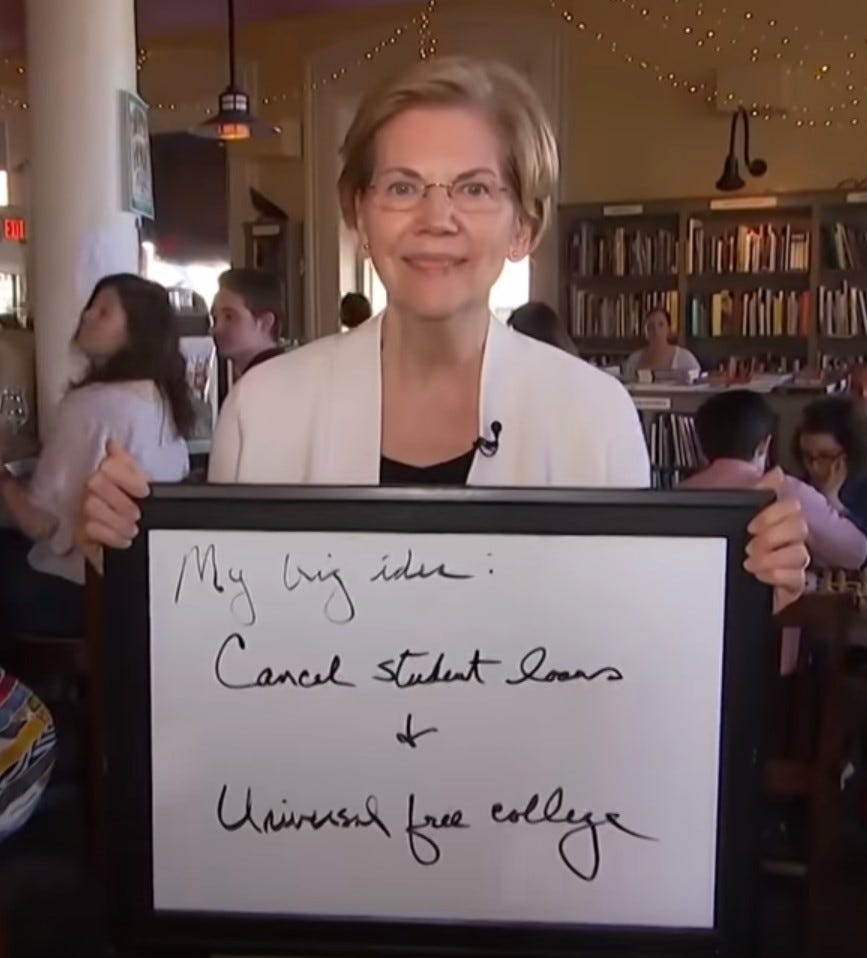 My big idea:
Cancel student loans
+
Universal free college